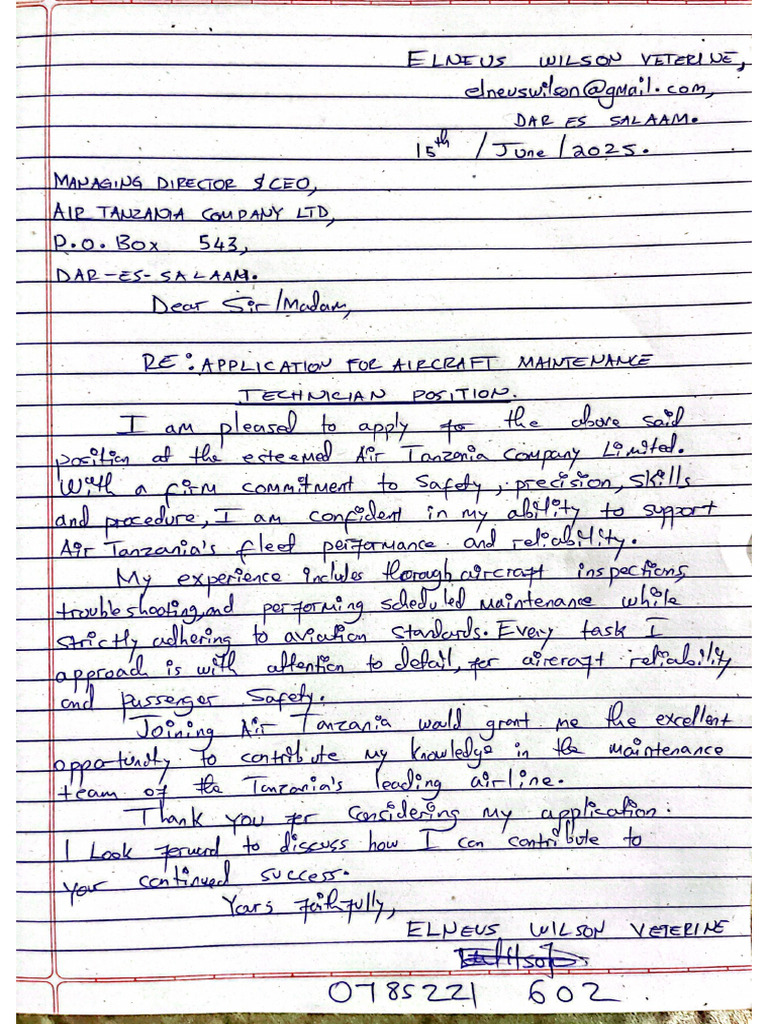 ELNEUS WILSON VETERINE,
elneuswilson@gmail.com,
DAR ES SALAAM.
15th /June/2025.
MANAGING DIRECTOR & CEO,
AIR TANZANIA COMPANY LTD,
P.O. BOX 543,
DAR-ES-SALAAM.
Dear Sir/Madam,
RE: APPLICATION FOR AIRCRAFT MAINTENANCE
TECHNICIAN POSITION.
I am pleased to apply for the above said
position at the esteemed Air Tanzania Company Limited.
With a firm commitment to safety, precision, skills
and procedure, I am confident in my ability to support
Air Tanzania's fleet performance and reliability.
My experience includes thorough aircraft inspections,
troubleshooting, and performing scheduled maintenance while
strictly adhering to aviation standards. Every task I
approach is with attention to detail, for aircraft reliability
and passenger safety.
Joining Air Tanzania would grant me the excellent
opportunity to contribute my knowledge in the maintenance
team of the Tanzania's leading airline.
Thank you for considering my application.
I Look forward to discuss how I can contribute to
your continued success.
Yours faithfully,
ELNEUS WILSON VETERINE
0785221 602